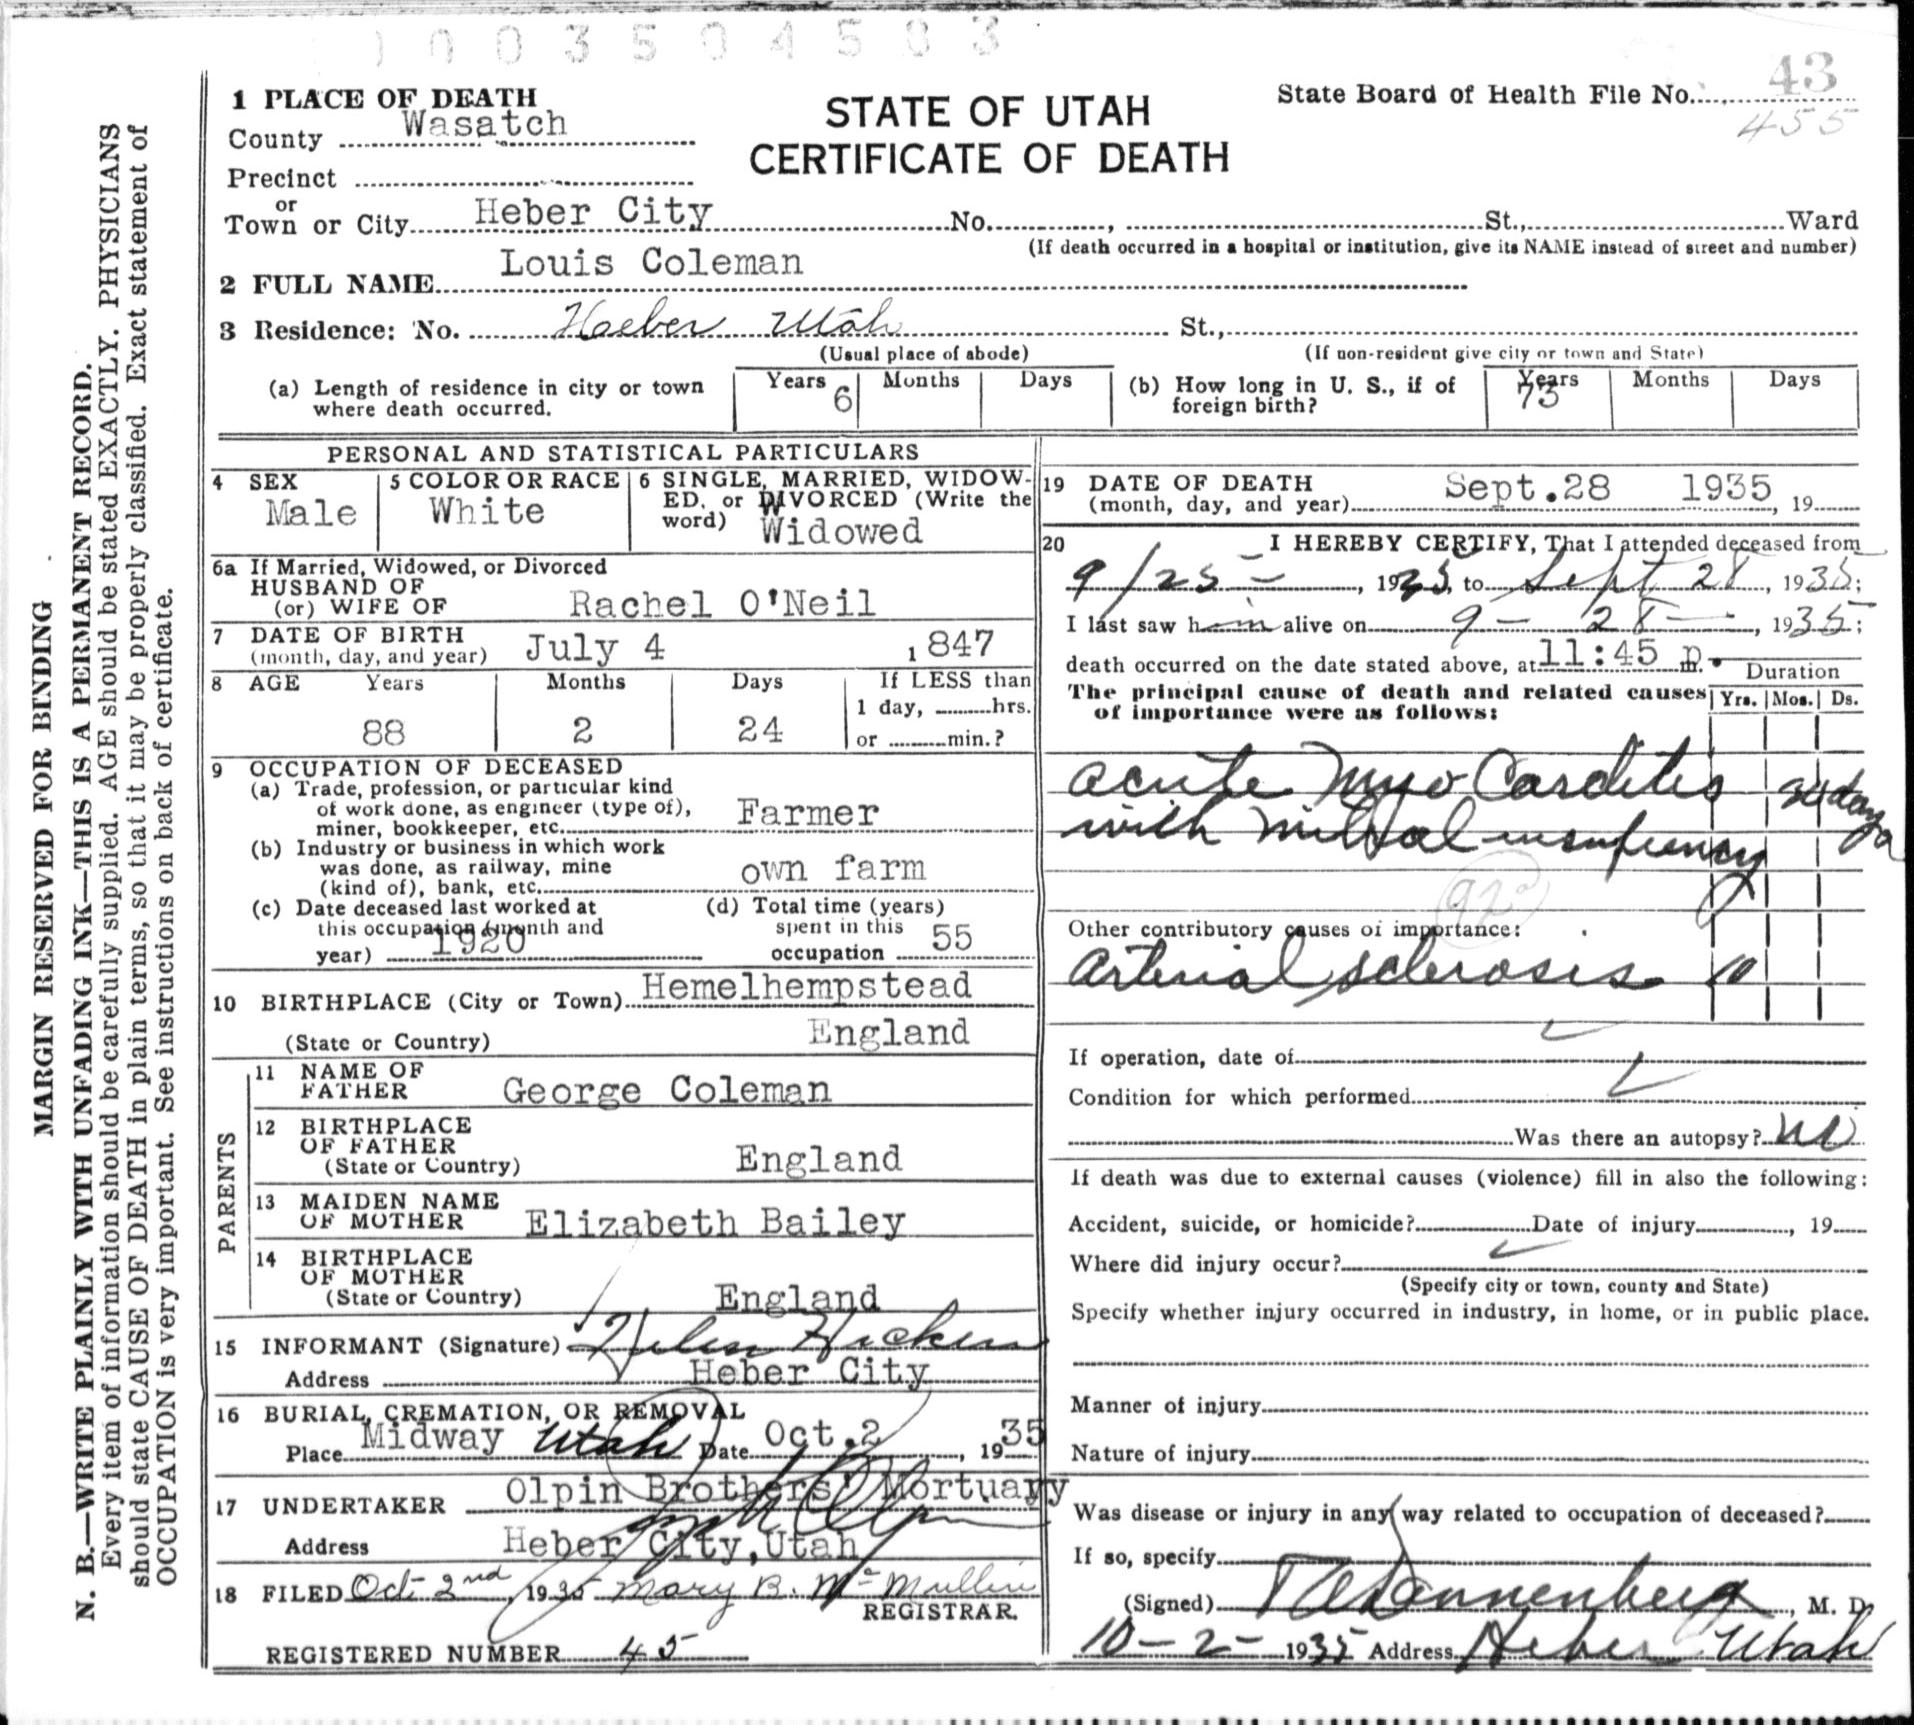 0003504583
1 PLACE OF DEATH
County Wasatch
Precinct
or
Town or City Heber City No. , St., Ward
(If death occurred in a hospital or institution, give its NAME instead of street and number)
STATE OF UTAH
CERTIFICATE OF DEATH
State Board of Health File No. 43
455
2 FULL NAME Louis Coleman
3 Residence: No. Heber Utah St.,
(Usual place of abode) (If non-resident give city or town and State)
(a) Length of residence in city or town where death occurred. Years 6 Months Days
(b) How long in U. S., if of foreign birth? Years 73 Months Days
PERSONAL AND STATISTICAL PARTICULARS
4 SEX Male
5 COLOR OR RACE White
6 SINGLE, MARRIED, WIDOWED, or DIVORCED (Write the word) Widowed
6a If Married, Widowed, or Divorced
HUSBAND OF
(or) WIFE OF Rachel O'Neil
7 DATE OF BIRTH
(month, day, and year) July 4 1847
8 AGE Years Months Days If LESS than
1 day, hrs.
88 2 24 or min.?
9 OCCUPATION OF DECEASED
(a) Trade, profession, or particular kind
of work done, as engineer (type of),
miner, bookkeeper, etc. Farmer
(b) Industry or business in which work
was done, as railway, mine
(kind of), bank, etc. own farm
(c) Date deceased last worked at
this occupation (month and
year) 1920
(d) Total time (years)
spent in this
occupation 55
10 BIRTHPLACE (City or Town) Hemelhempstead
(State or Country) England
PARENTS
11 NAME OF
FATHER George Coleman
12 BIRTHPLACE
OF FATHER
(State or Country) England
13 MAIDEN NAME
OF MOTHER Elizabeth Bailey
14 BIRTHPLACE
OF MOTHER
(State or Country) England
15 INFORMANT (Signature) Helen Hicken
Address Heber City
16 BURIAL, CREMATION, OR REMOVAL
Place Midway Utah Date Oct.2, 1935
17 UNDERTAKER Olpin Brothers' Mortuary
Address Heber City, Utah
18 FILED Oct 2nd, 1935 Mary B. McMullin
REGISTRAR.
REGISTERED NUMBER 45
19 DATE OF DEATH
(month, day, and year) Sept.28 1935, 19
20 I HEREBY CERTIFY, That I attended deceased from
9/25 -, 1935, to Sept 28, 1935;
I last saw him alive on 9 - 28 -, 1935;
death occurred on the date stated above, at 11:45 p.m.
Duration
The principal cause of death and related causes
of importance were as follows: Yrs. Mos. Ds.
acute Myo Carditis days
with mitral insufiency
92
Other contributory causes of importance:
Arterial sclerosis 10
If operation, date of
Condition for which performed
Was there an autopsy? no
If death was due to external causes (violence) fill in also the following:
Accident, suicide, or homicide? Date of injury, 19
Where did injury occur?
(Specify city or town, county and State)
Specify whether injury occurred in industry, in home, or in public place.
Manner of injury
Nature of injury
Was disease or injury in any way related to occupation of deceased?
If so, specify
(Signed) Dannenberg, M. D.
10-2-1935 Address Heber Utah
MARGIN RESERVED FOR BINDING
N. B.—WRITE PLAINLY WITH UNFADING INK—THIS IS A PERMANENT RECORD.
Every item of information should be carefully supplied. AGE should be stated EXACTLY. PHYSICIANS
should state CAUSE OF DEATH in plain terms, so that it may be properly classified. Exact statement of
OCCUPATION is very important. See instructions on back of certificate.